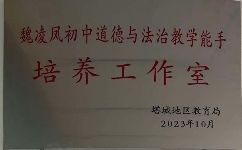 魏凌凤初中道德与法治教学能手
培养工作室
塔城地区教育局
2023年10月